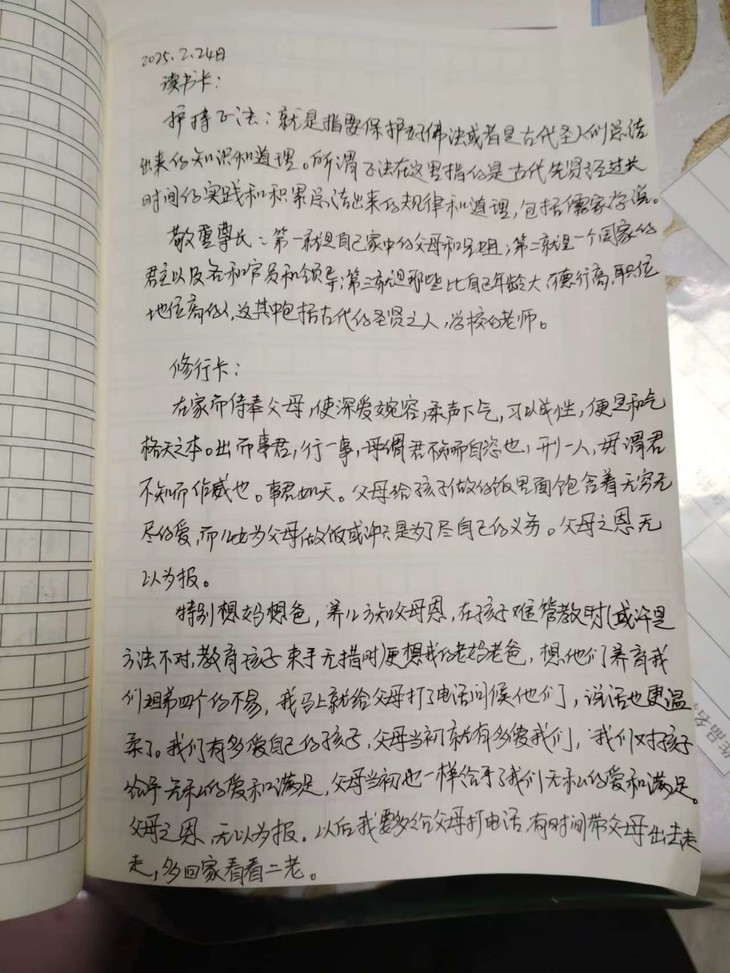 2025.2.24日
读书卡：
护持正法：就是指要保护好佛法或者是古代圣人们总结
出来的知识和道理。所谓正法在这里指的是古代先贤经过长
时间的实践和积累总结出来的规律和道理，包括儒家学说。
敬重尊长：第一就是自己家中的父母和兄姐；第二就是一个国家的
君主以及各和官员和领导；第三就是那些比自己年龄大，德行高，职位
地位高的人，这其中包括古代的圣贤之人，学校的老师。
修行卡：
在家而侍奉父母，使深爱婉容，柔声下气，习以成性，便是和气
格天之本。出而事君，行一事，毋谓君不知而自恣也，刑一人，毋谓君
不知而作威也。事君如天。父母给孩子做的饭里面饱含着无穷无
尽的爱，而儿也为父母做饭或许只是为了尽自己的义务。父母之恩无
以为报。
特别想妈想爸，养儿方知父母恩，在孩子难管教时（或许是
方法不对，教育孩子束手无措时）更想我的老妈老爸，想他们养育我
们姐弟四个的不易，我马上就给父母打了电话问候他们，说话也更温
柔了。我们有多爱自己的孩子，父母当初就有多爱我们，我们对孩子
给予无私的爱和满足，父母当初也一样给予了我们无私的爱和满足。
父母之恩，无以为报。以后我要多给父母打电话，有时间带父母出去走
走，多回家看看二老。